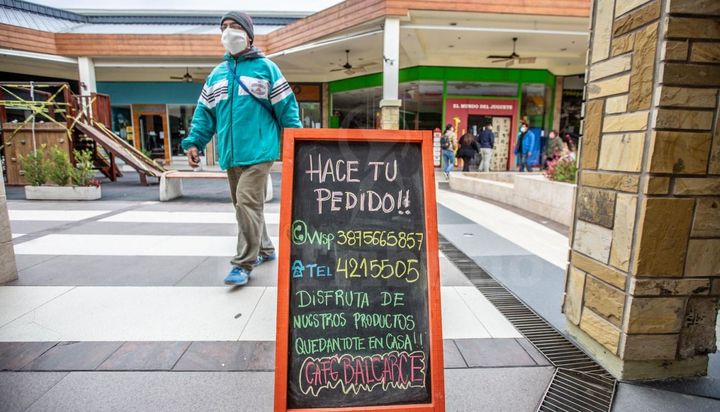 MUNDO DEL JUGUETE
HACE TU
PEDIDO!!
WSP 3875665857
TEL 4215505
DISFRUTA DE
NUESTROS PRODUCTOS
QUEDANTOTE EN CASA!!
CAFÉ BALCARCE